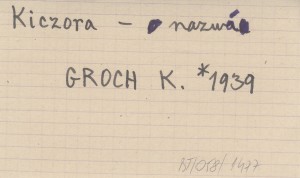 Kiczora - nazwa
GROCH K. *1939